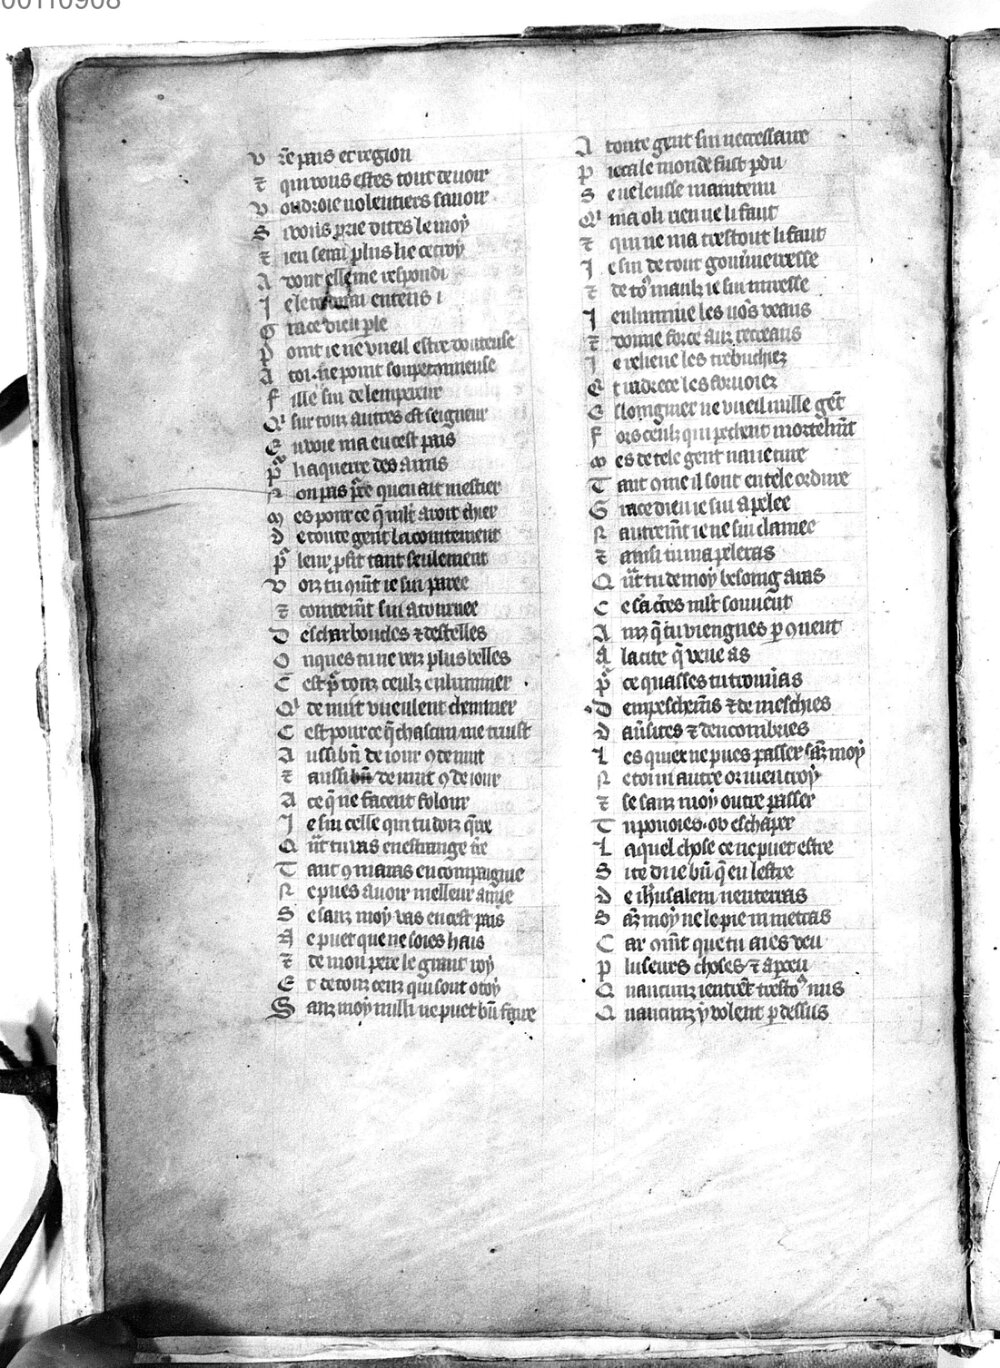 00110908
V r̃e païs et region
⁊ qui vous estes tout de voir
V oudroie volentiers savoir
S i vous prie dites le moy
⁊ ien serai plus lie ce croy
A dont elle me respondi
J e le te dirai entens i
G race dieu ple
D ont ie ne vueil estre douteuse
A toi ne point souperonneuse
F ille sui de lempereur
Qͥ sur touz autres est seigneur
E nvoie ma en cest pais
Pͬ li aquerre des amis
N on pas pͬce quen ait mestier
M es pour ce q̃ mlt avoit chier
D e toute gent lacointement
Pͬ leur ꝓfit tant seulement
V oiz tu ꝯm̃t ie sui paree
⁊ cointem̃t sui atournee
D escharboucles ⁊ destelles
O nques tu ne veiz plus belles
C est pͬ touz ceulz enluminer
Qͥ de nuit vueulent cheminer
C est pour ce q̃ chascun me truist
A ussi bn̄ de iour ꝯ de nuit
⁊ aussi bn̄ de nuit ꝯ de iour
A ce q̃ ne facent folour
J e sui celle qui tu doiz q̃rre
Q ñt tu vas en estrange t̃re
T ant ꝯ mauras en compaignie
N e pues avoir melleur amie
S e sanz moy vas en cest pais
N e puet que ne soies hais
⁊ de mon pere le grant roy
E t de touz ceuz qui sont o soy
S anz moy nulli ne puet bn̄ faire
A toute gent sui neccessaire
P ieca le monde fust pdu
S e ne leusse maintenu
Qͥ ma o li rien ne li faut
⁊ qui ne ma trestout li faut
J e sui de tout gouv̄nerresse
⁊ de toꝰ maulz ie sui mirresse
J enlumine les nõs veans
⁊ donne force aux recreans
J e relieve les trebuchiez
E t radrece les forvoiez
E slongnier ne vueil nulle gẽt
F ors ceulz qui pechent mortelm̃t
M es de tele gent nai ie cure
T ant ꝯme il sont en tele ordure
G race dieu ie sui apelee
N autrem̃t ie ne sui clamee
⁊ ainsi tu ma pleras
Q ñt tu de moy besoing aras
C e sa c̃tes mlt souvẽt
A inz q̃ tu viengnes p ꝯvent
A la cite q̃ veue as
Pͬ ce quasses tu trouv̄as
D empeschem̃s ⁊ de meschies
D aṽsites ⁊ dencombries
L es quiex ne pues passer sãz moy
N e toi ni autre or men croy
⁊ se sanz moy outre passer
T u povoies ou eschaper
L aquel chose ce ne puet estre
S i te die bn̄ q̃ en lestre
D e ihrusalem nenterras
S ãz moy ne le pie ni metras
C ar ꝯm̃t que tu aies veu
P luseurs choses ⁊ apceu
Q uaucunz ientrẽt trestoꝰ nus
Q uaucunz y volent p dessus